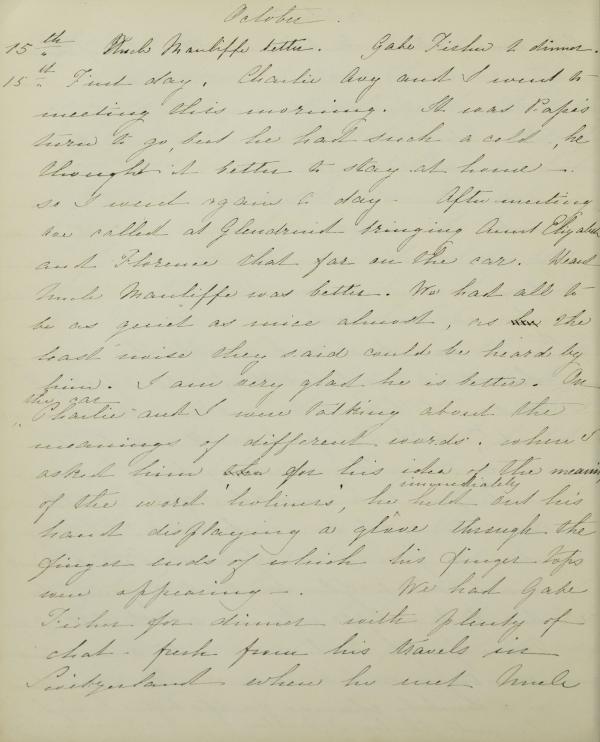 October.
15th Uncle Maunliffe better. Gabe Fisher to dinner.
15th First day. Charlie Avy and I went to
meeting this morning. It was Papa's
turn to go, but he had such a cold, he
thought it better to stay at home -.
so I went again to day. After meeting
we called at Glendruid bringing Aunt Elizabeth
and Florence that far on the car. Heard
Uncle Maunliffe was better. We had all to
be as quiet as mice almost, as the
least noise they said could be heard by
him. I am very glad he is better. On
the car
Charlie and I were talking about the
meanings of different words. when I
asked him for his idea of the meaning
immediately
of the word 'holiness', he held out his
hand displaying a glove through the
finger ends of which his finger tops
were appearing -. We had Gabe
Fisher for dinner with plenty of
chat - fresh from his travels in
Switzerland where he met Uncle